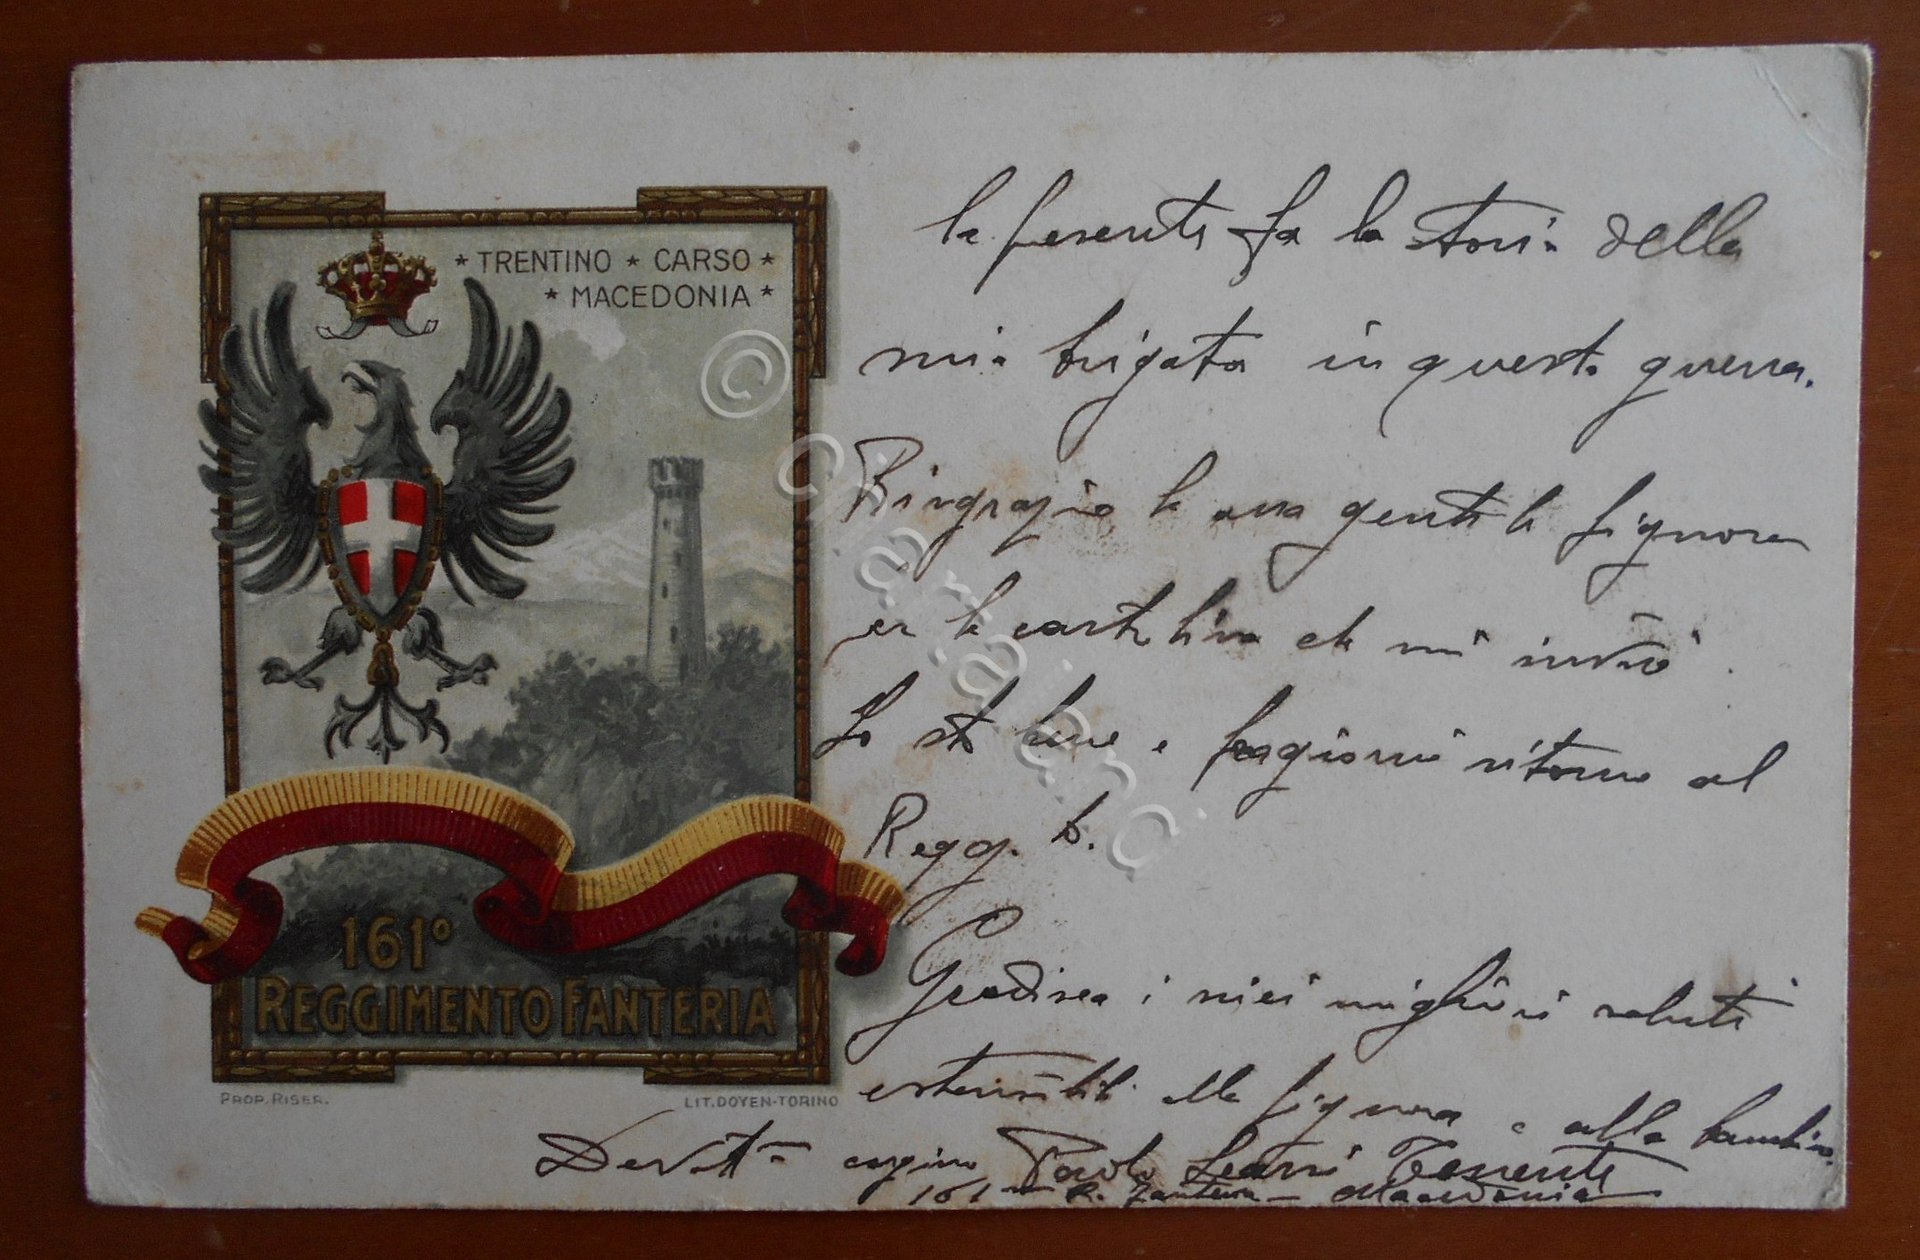 * TRENTINO * CARSO *
* MACEDONIA *
161°
REGGIMENTO FANTERIA
PROP. RISER.
LIT. DOYEN-TORINO
la presente fa la storia della
mia brigata in questa guerra.
Ringrazio la sua gentile Signora
per la cartolina che mi inviò.
Io sto bene e fra giorni ritorno al
Regg.to.
Gradisca i miei migliori saluti
estensibili alla Signora e alla bambina.
Devot.mo cugino Paolo Tenente
161mo R. Fanteria - Macedonia
© Cartaina